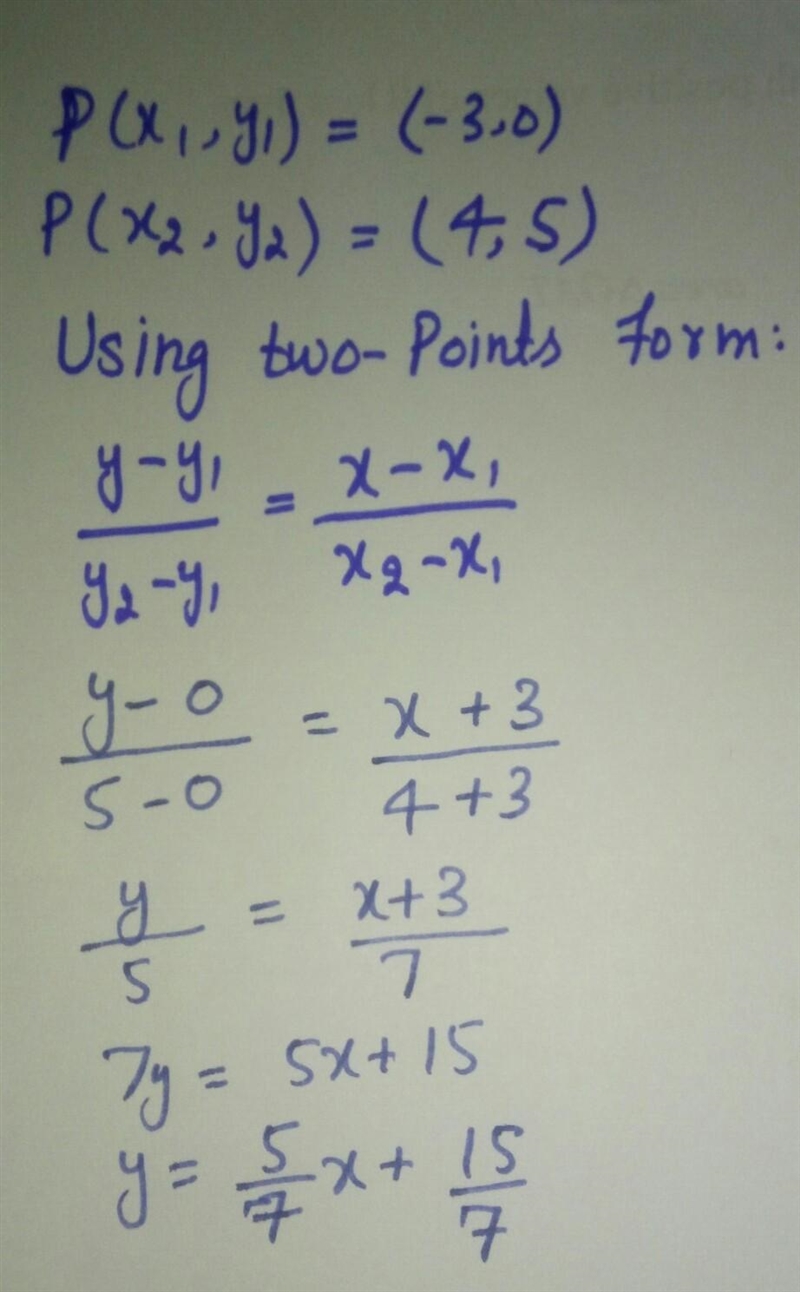 P(x₁, y₁) = (-3, 0)
P(x₂, y₂) = (4, 5)
Using two-Points Form:
(y - y₁)/(y₂ - y₁) = (x - x₁)/(x₂ - x₁)
(y - 0)/(5 - 0) = (x + 3)/(4 + 3)
y/5 = (x + 3)/7
7y = 5x + 15
y = 5/7 x + 15/7